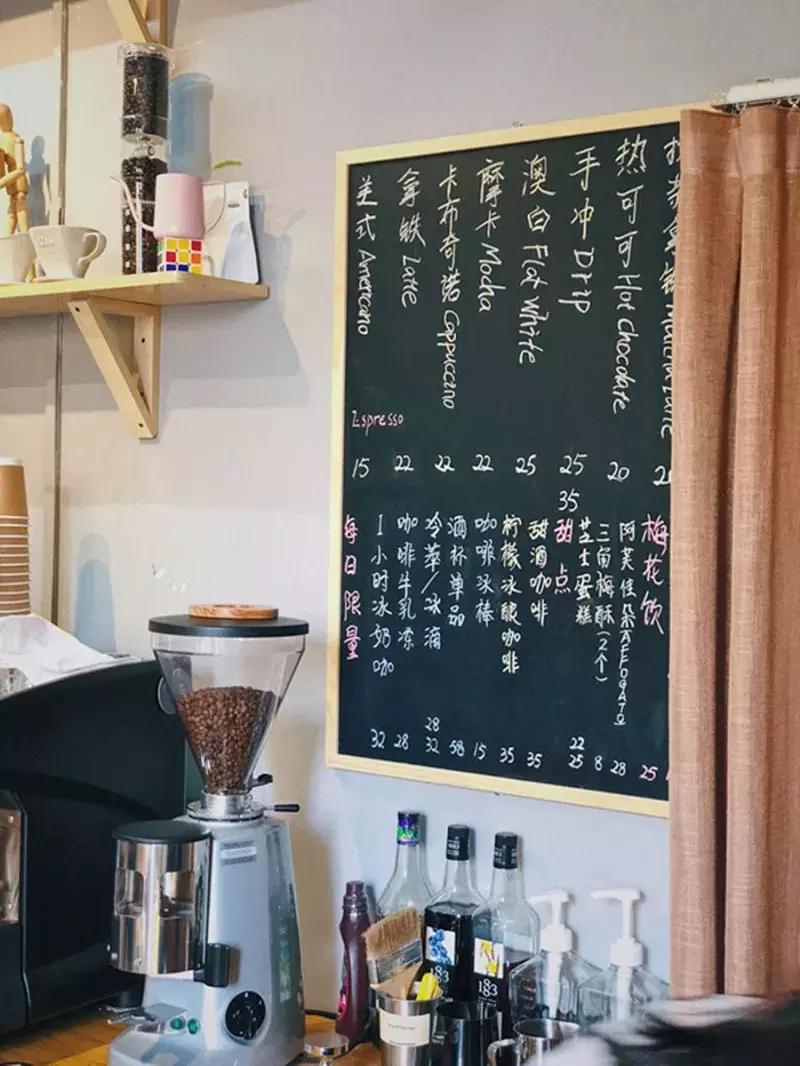 美式 Americano 15
拿铁 Latte 22
卡布奇诺 Cappuccino 22
摩卡 Mocha 22
澳白 Flat white 25
手冲 Drip 25 35
热可可 Hot chocolate 20
Espresso
每日限量
1小时冰奶咖 32
咖啡牛乳冻 28
冷萃/冰滴 28 32
酒杯单品 58
咖啡冰棒 15
柠檬冰酸咖啡 35
甜酒咖啡 35
甜点
芝士蛋糕 22 25
三角梅酥(2个) 8
阿芙佳朵AFFOGATO 28
梅花饮 25
183
183